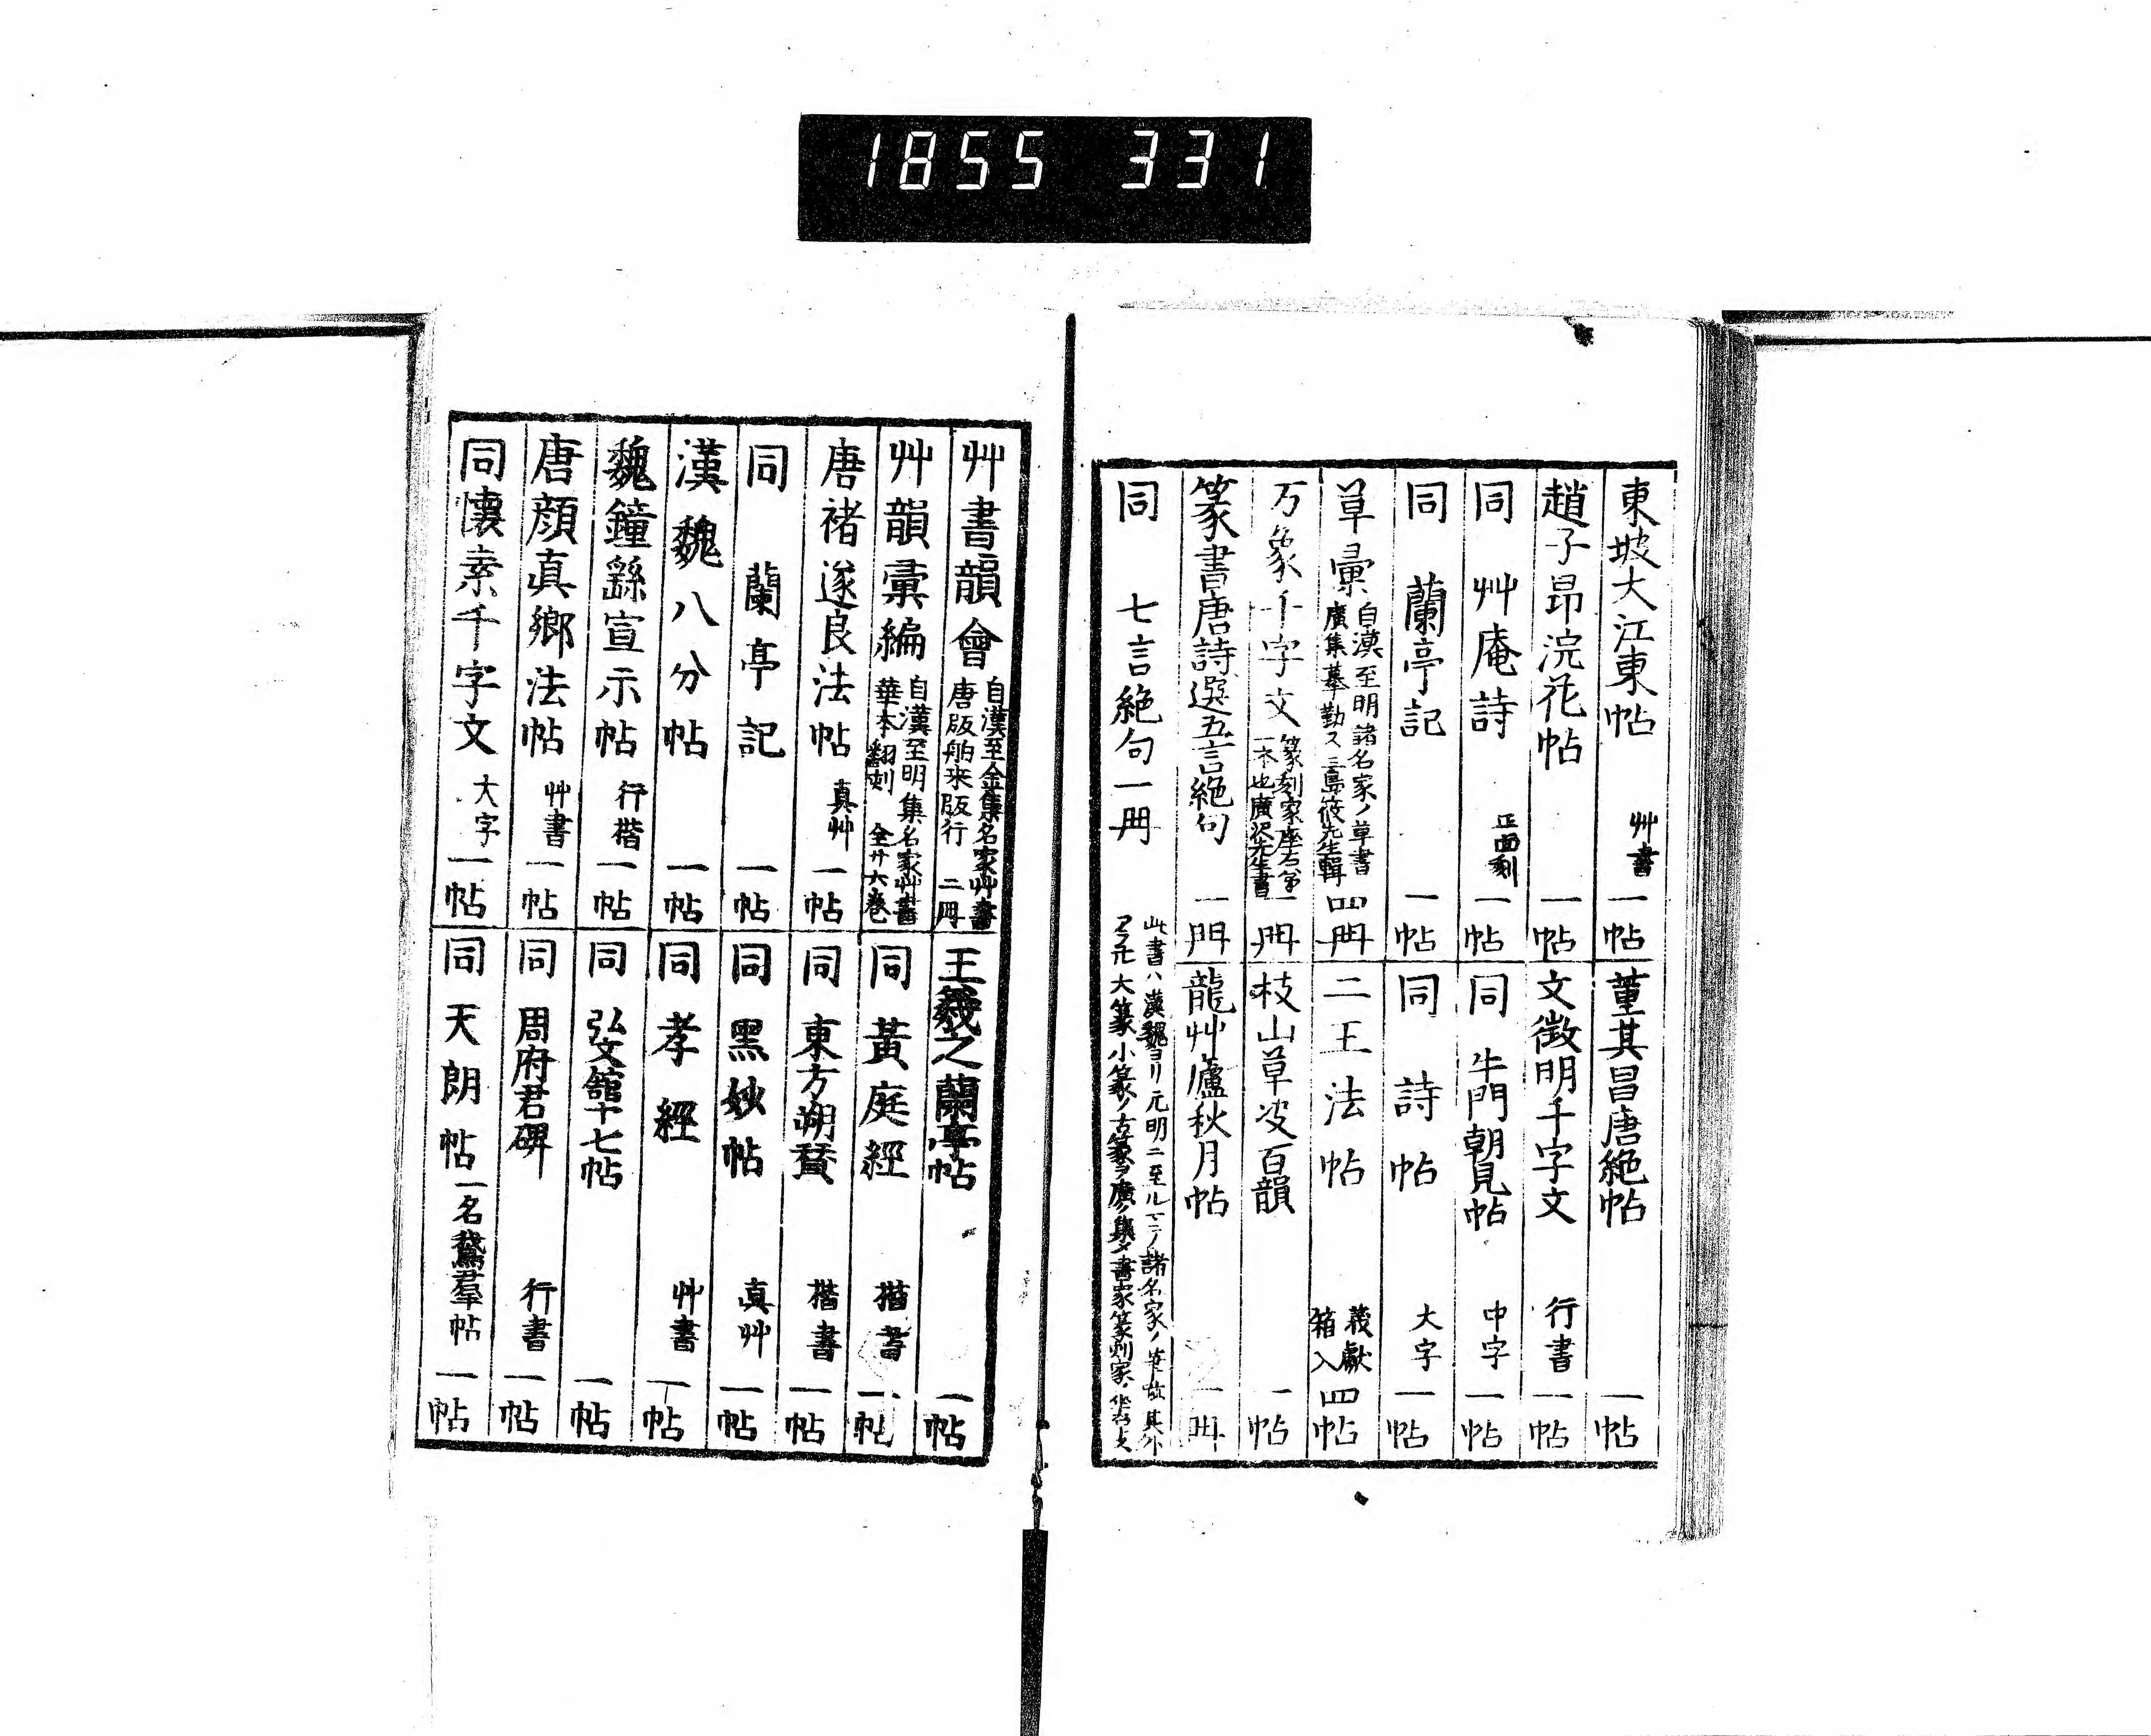 1855 331
東坡大江東帖 艸書 一帖
趙子昂浣花帖 一帖
同 艸庵詩 正面刻 一帖
同 蘭亭記 一帖
草彙 自漢至明諸名家ノ草書
廣集摹勒ス 三島筱先生輯 四冊
万象千字文 篆刻家座右第
一本也廣沢先生書 一冊
篆書唐詩選五言絶句 一冊
同 七言絶句一冊
董其昌唐絶帖 一帖
文徴明千字文 行書 一帖
同 牛門朝覲帖 中字 一帖
同 詩帖 大字 一帖
二王法帖 羲獻
箱入 四帖
枝山草决百韻 一帖
龍艸廬秋月帖 一冊
此書ハ漢魏ヨリ元明ニ至ルマテノ諸名家ノ筆 其外
大篆小篆ノ古篆ヲ廣ク集メ書家篆刻家
艸書韻會 自漢至金集名家艸書
唐版舶来版行 二冊
艸韻彙編 自漢至明集名家艸書
華本翻刻 全廿六卷
唐褚遂良法帖 真艸 一帖
同 蘭亭記 一帖
漢魏八分帖 一帖
魏鐘繇宣示帖 行楷 一帖
唐顔真郷法帖 艸書 一帖
同懐素千字文 大字 一帖
王羲之蘭亭帖 一帖
同 黃庭經 楷書 一帖
同 東方朔賛 楷書 一帖
同 黑妙帖 真艸 一帖
同 孝經 艸書 一帖
同 弘文館十七帖 一帖
同 周府君碑 行書 一帖
同 天朗帖 一名鵞羣帖 一帖